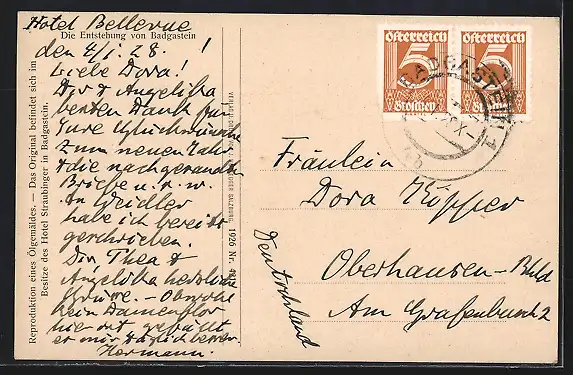 Hotel Bellevue
Die Entstehung von Badgastein
den 4/I. 28. !
Liebe Dora!
Dir & Angelika
besten Dank für
Eure Glückwünsche
zum neuen Jahr
& die nachgesandten
Briefe u. s. w.
In Weidler
habe ich bereits
geschrieben.
Dir Thea &
Angelika herzliche
Grüsse. – Obwohl
kein Damenflor
hier ist gefällt
er mir täglich besser.
Hermann.
Reproduktion eines Ölgemäldes. — Das Original befindet sich im
Besitze des Hotel Straubinger in Badgastein.
1926 Nr.
Österreich Österreich
5 5
Groschen Groschen
BADGASTEIN
Fräulein
Dora Küpper
Oberhausen-Rhld
Am Grafenbusch 2
Deutschland